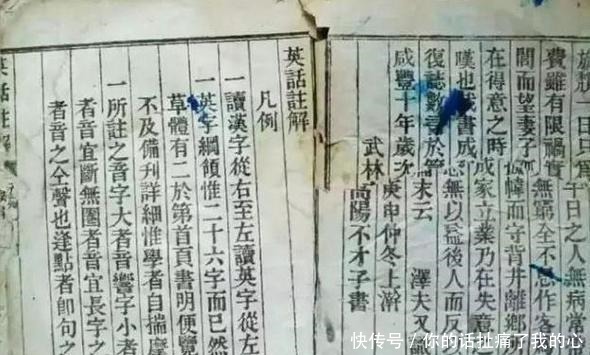 一日只爲千日之人無病常
費雖有限禍實無窮全不忌作客
閭而望妻子倚幃而守背井離鄉
在得意之時成家立業乃在失意
嘆也書成忍無以益後人而反
復誌數言於篇末云 澤夫又
咸豐十年歲次庚申仲冬上澣
武林高陽不才子書
英話註解
凡例
一讀漢字從右至左讀英字從左
一英字綱領惟二十六字而已然
草體有二於第首頁書明便覽
不及備刊詳細惟學者自揣摩
一所註之音字大者音響字小者
者音宜斷無圈者音宜長字之
者音之仝聲也逢點者即句之
英話註解
快传号/你的话扯痛了我的心